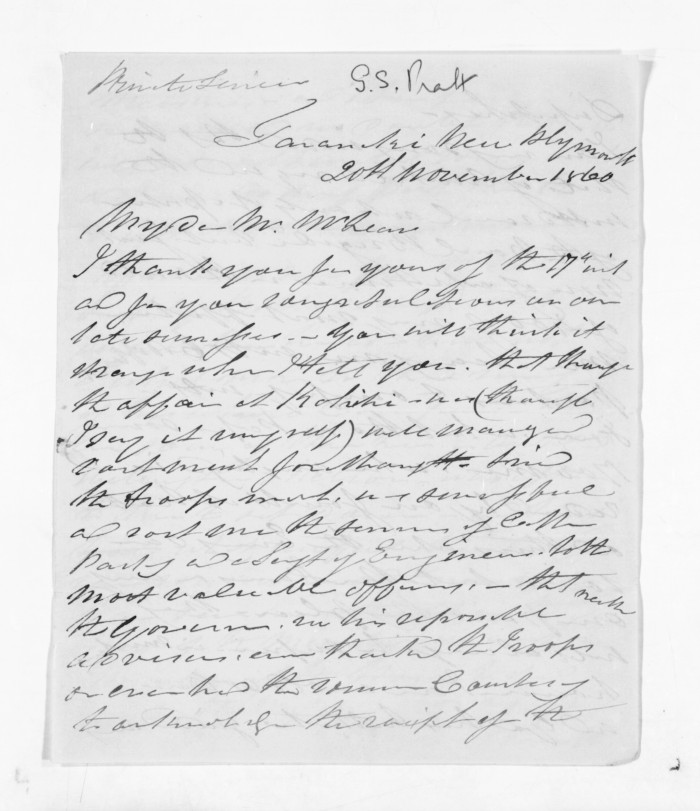 Private G.S. Pratt
Taranaki New Plymouth
20th November 1860
My Dr Mr. McLean
I thank you for yours of the 17th inst
and for your congratulations on our
late successes – You will think it
strange when I tell you. that though
the affair at Kohihi was (though
I say it myself) well managed
cost
the troops most. successful
and cost me the services of
and a Sergt of Engineers. both
most valuable officers. – that neither
the Governor. nor his responsible
advisers. ever thanked the Troops
or even had the common Courtesy
to acknowledge the receipt of the